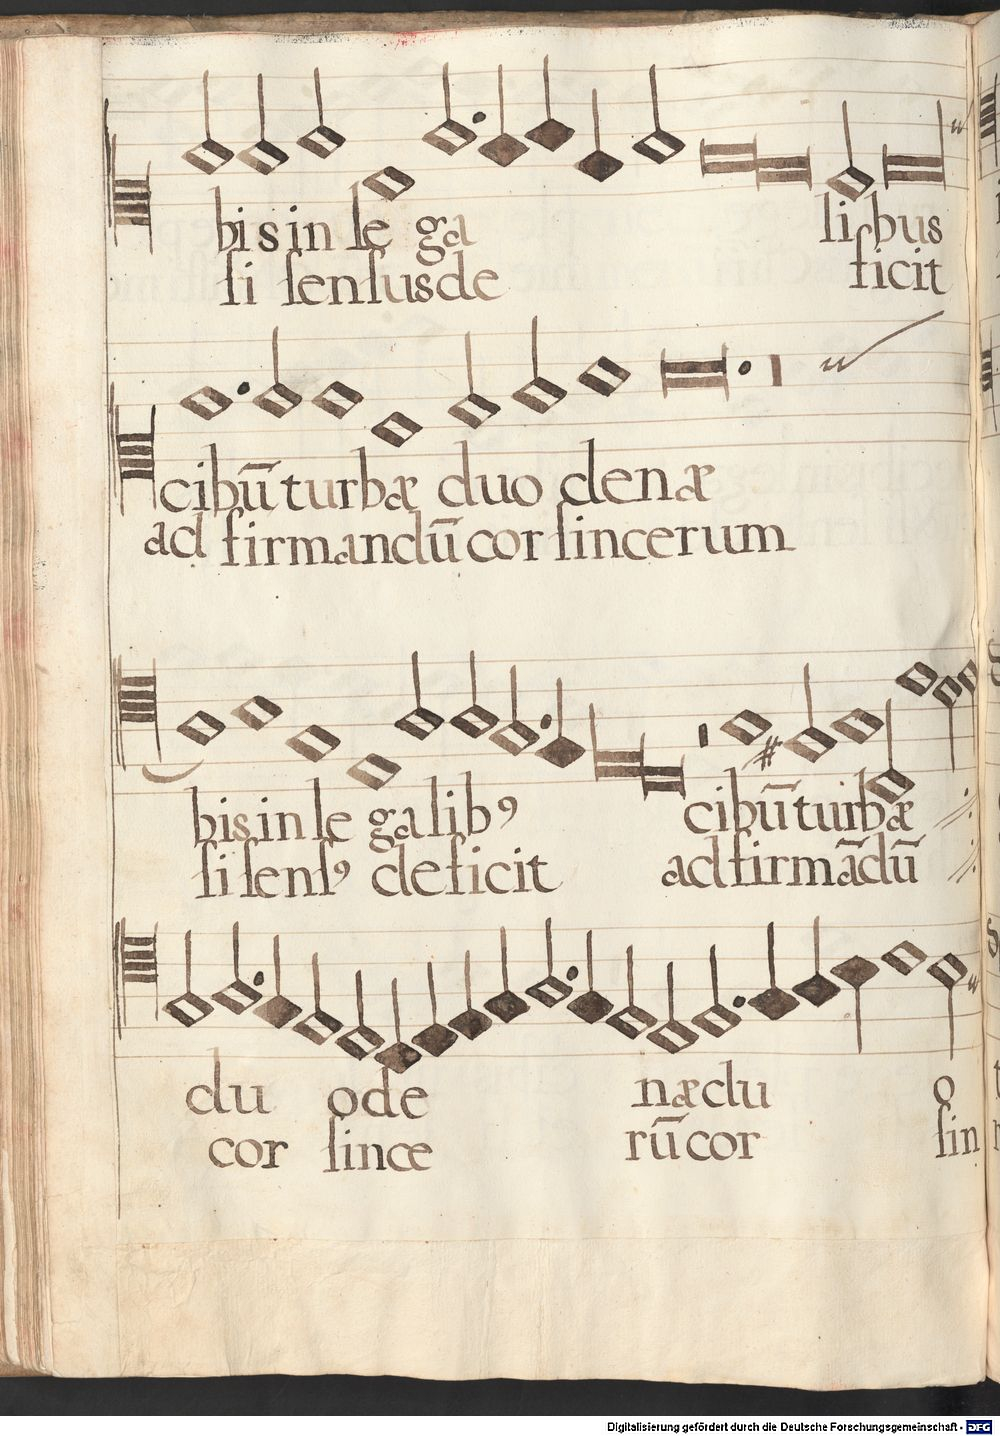 bis in le ga li bus
si sensus de ficit
cibū turbæ duo denæ
ad firmandū cor sincerum
bis in le ga libꝰ cibū turbæ
si sensꝰ deficit ad firmādū
du ode næ du o
cor since rū cor sin
Digitalisierung gefördert durch die Deutsche Forschungsgemeinschaft - DFG